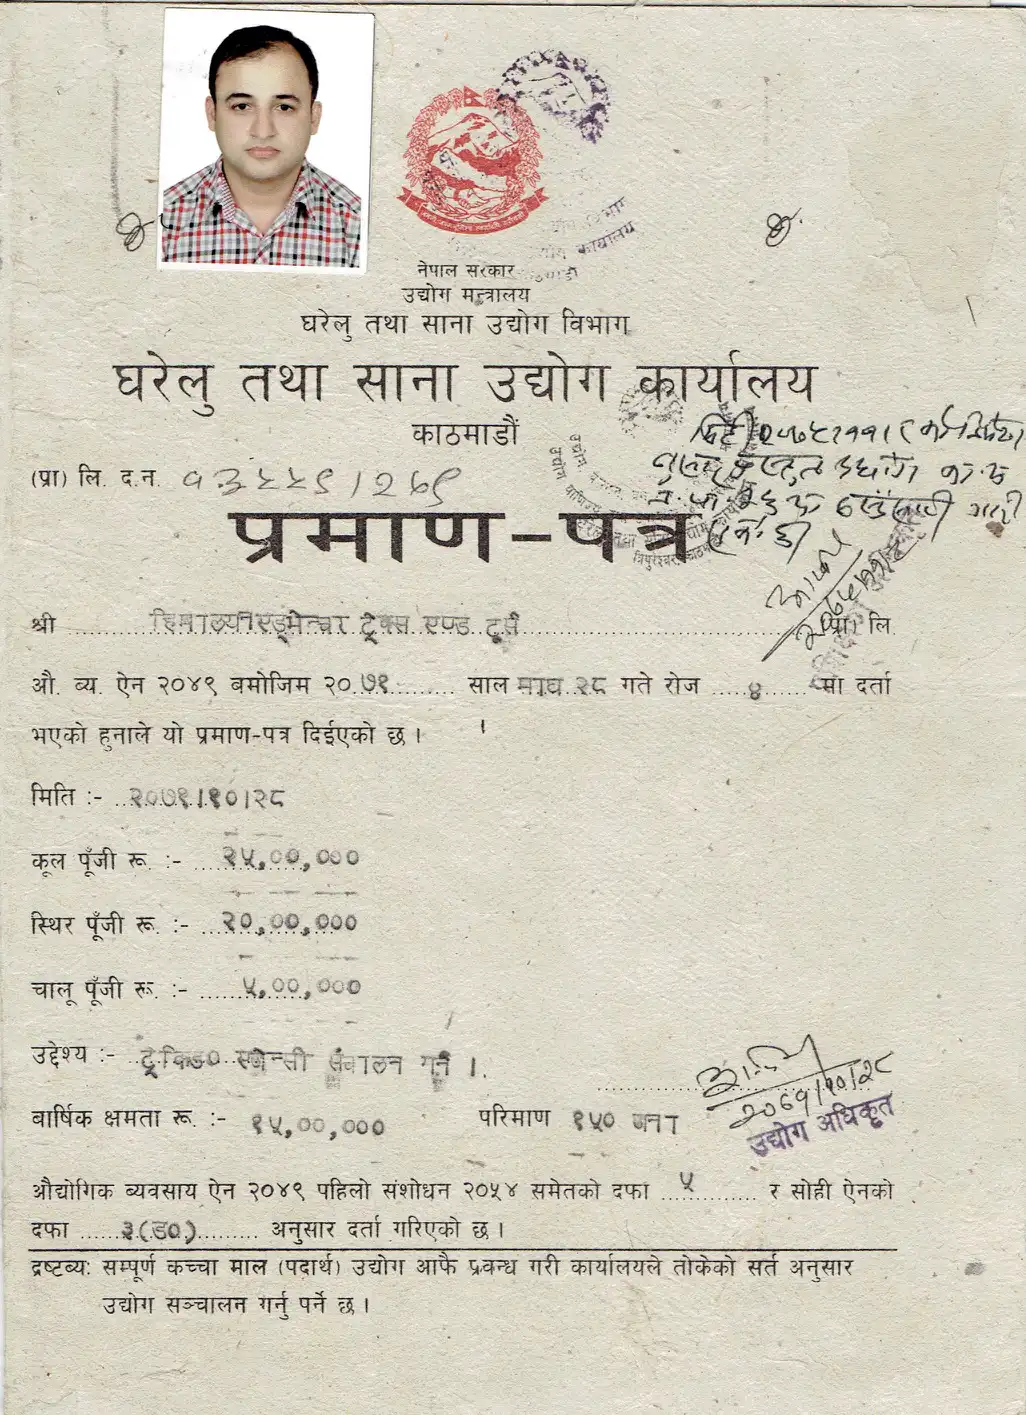 नेपाल सरकार
उद्योग मन्त्रालय
घरेलु तथा साना उद्योग विभाग
घरेलु तथा साना उद्योग कार्यालय
काठमाडौं
(प्रा) लि. द.न. १३५५९/२७९
प्रमाण-पत्र
श्री हिमालयन एड्भेन्चर ट्रेक्स एण्ड टुर्स (प्रा) लि.
औ. ब्य. ऐन २०४९ बमोजिम २०७१ साल माघ २८ गते रोज ४ मा दर्ता
भएको हुनाले यो प्रमाण-पत्र दिईएको छ ।
मिति :- २०७१।१०।२८
कूल पूँजी रू. :- २५,००,०००
स्थिर पूँजी रू. :- २०,००,०००
चालू पूँजी रू. :- ५,००,०००
उद्देश्य :- ट्रेकिङ एजेन्सी संचालन गर्ने ।
२०७१/१०/२८
उद्योग अधिकृत
बार्षिक क्षमता रू. :- १५,००,००० परिमाण १५० जना
औद्योगिक ब्यवसाय ऐन २०४९ पहिलो संशोधन २०५४ समेतको दफा ५ र सोही ऐनको
दफा ३(ङ) अनुसार दर्ता गरिएको छ ।
द्रष्टब्य: सम्पूर्ण कच्चा माल (पदार्थ) उद्योग आफै प्रवन्ध गरी कार्यालयले तोकेको सर्त अनुसार
उद्योग सञ्चालन गर्नु पर्ने छ ।